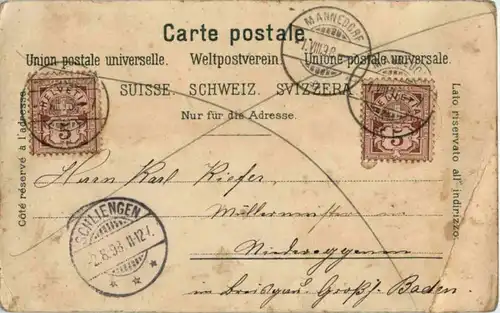 Carte postale.
MÄNNEDORF
1.VIII.98
Union postale universelle. Weltpostverein. Unione postale universale.
SUISSE SCHWEIZ. SVIZZERA
Nur für die Adresse.
Côté réservé à l'adresse.
Lato riservato all' indirizzo.
HELVETIA
5
HELVETIA
5
Herrn Karl Kiefer,
Müllermeister
SCHLIENGEN
2.8.98.11-12V.
Niedereggenen
im Breisgau. Großh. Baden.